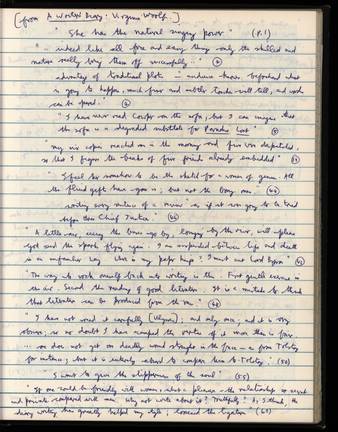 [from A Writer's Diary: Virginia Woolf.]
"She has the natural singing power" (p. 1)
"– indeed like all fine and easy things only the skilled and
mature really bring them off successfully." 
advantage of traditional plots – audience knows beforehand what
is going to happen, much finer and subtler touches will tell, and words
can be spared."
"I have never read Cowper on the sofa, but I can imagine that
the sofa is a degraded substitute for Paradise Lost"
"my six copies reached me in the morning and five were despatched,
so that I figure the beaks of five friends already embedded"
"I feel her somehow to be the skeleton for a woman of genius. All
the fluid gifts have gone in; but not the bony ones."
writing every sentence of a review as if it were going to be tried
before three Chief Justices"
"A little ease, seeing the buses go by, lounging by the river, will please
God send the sparks flying again. I am suspended between life and death
in an unfamiliar way. Where is my paper knife? I must cut Lord Byron"
"The way to rock oneself back into writing is this. First gentle exercise in
the air. Second the reading of good literature. It is a mistake to think
that literature can be produced from the raw."
"I have not read it carefully [Ulysses]; and only once; and it is very
obscure; so no doubt I have scamped the virtue of it more than is fair.
... one does not get one deadly wound straight in the face – as from Tolstoy
for instance; but it is entirely absurd to compare him to Tolstoy." (50)
"I want to give the slipperiness of the soul" (55)
"If one could be friendly with women, what a pleasure – the relationship so secret
and private compared with men. Why not write about it? Truthfully? As I think, the
diary writing has greatly helped my style; loosened the ligatures"